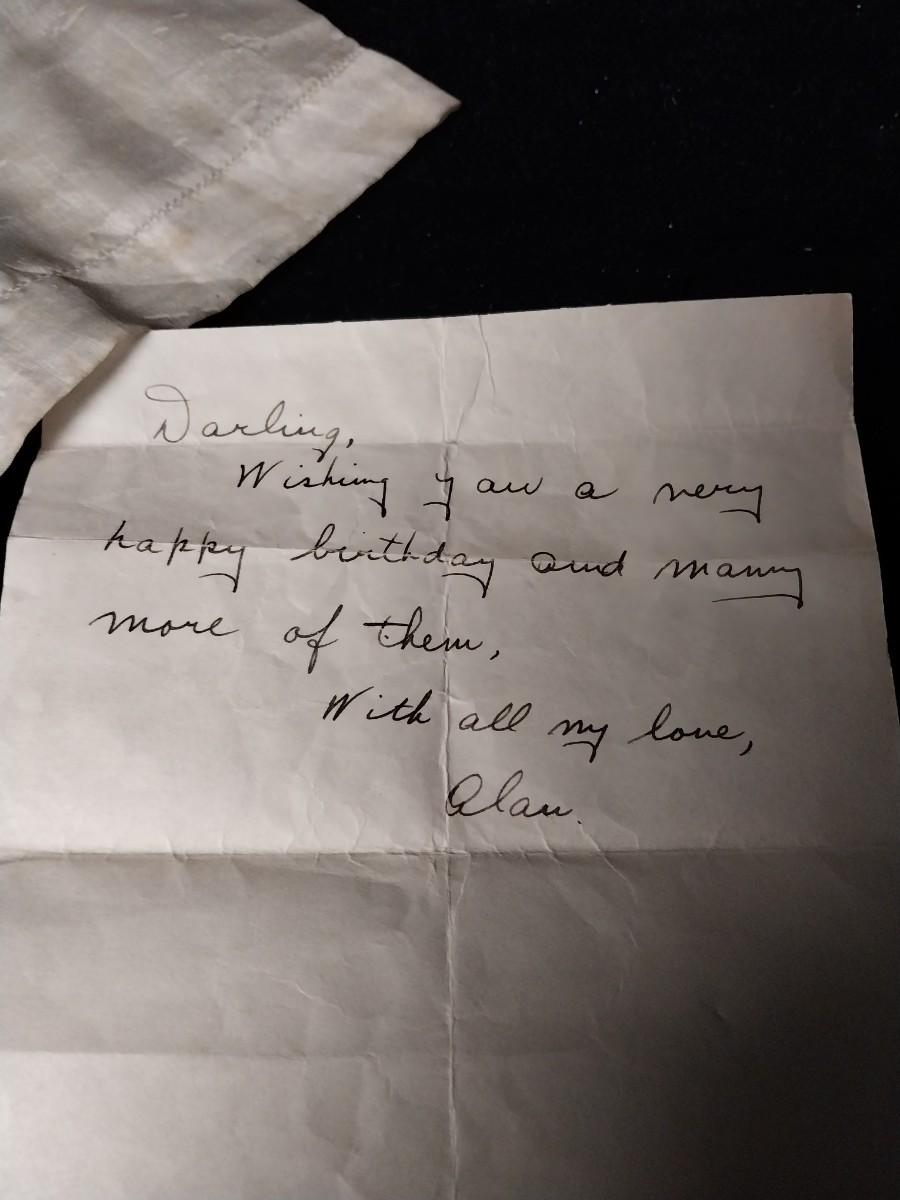 Darling,
Wishing you a very
happy birthday and many
more of them,
With all my love,
Alan.